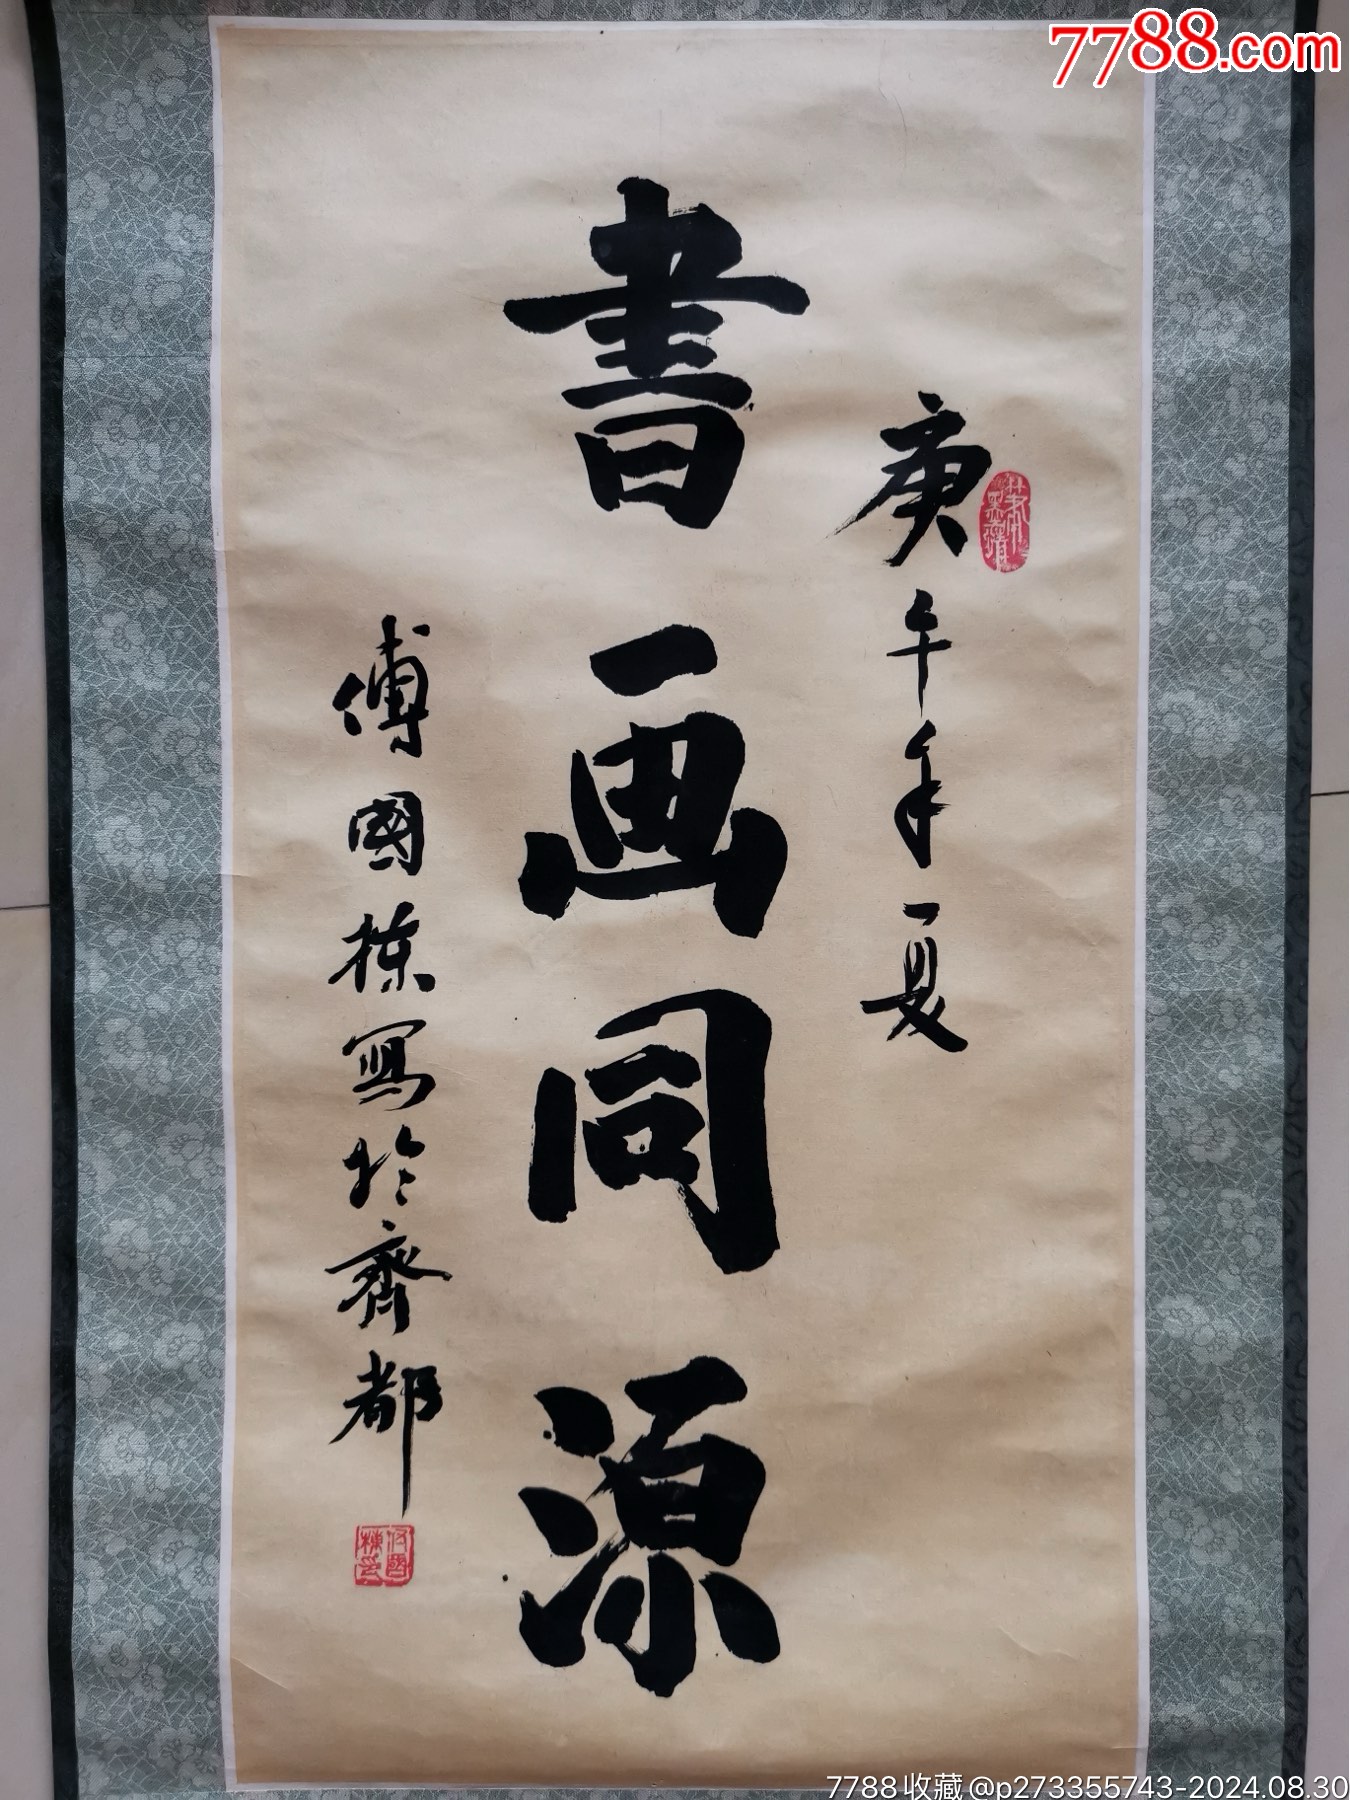 7788.com
庚午年夏
書画同源
傅國棟寫於齊都
7788收藏@p273355743-2024.08.30